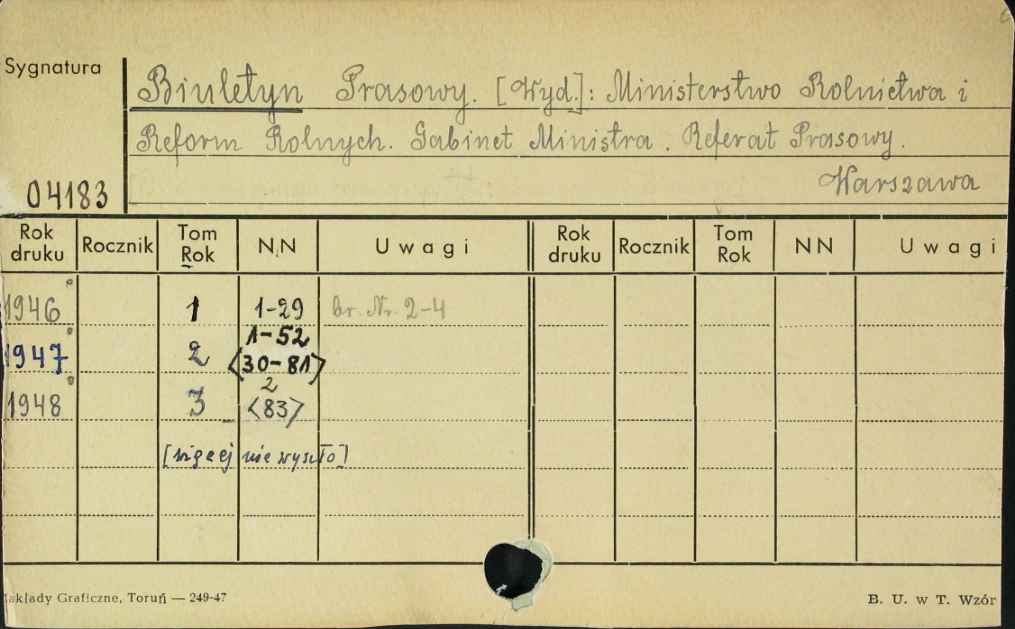 Sygnatura
Biuletyn Prasowy. [Wyd.]: Ministerstwo Rolnictwa i
Reform Rolnych. Gabinet Ministra. Referat Prasowy.
Warszawa
04183
Rok druku Rocznik Tom Rok NN Uwagi Rok druku Rocznik Tom Rok NN Uwagi
1946 1 1-29 br. Nr. 2-4
1947 2 1-52 <30-81>
1948 3 2 <83>
[więcej nie wyszło]
akłady Graficzne, Toruń — 249-47
B. U. w T. Wzór